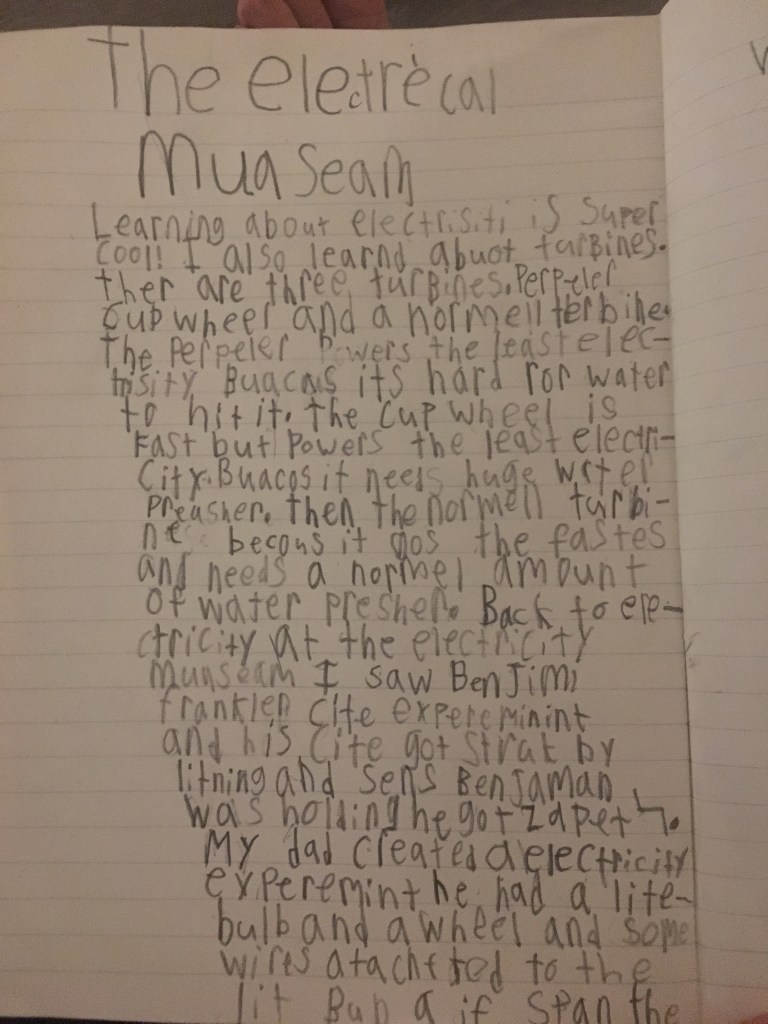 The eletrecal
Muaseam
Learning about electrisiti is super
cool! I also learnd abuot turbines.
ther are three turbines. Perpeler
cup wheel and a normell terbine.
The Perpeler Powers the least elec-
trisity Buacus its hard for water
to hit it. the cup wheel is
Fast but Powers the least electri-
City. Buacos it needs huge wrter
Preasher. then the normell turbi-
ne becous it gos the fastes
and needs a normel amount
of water presher. Back to ele-
ctricity at the electricity
Muaseam I saw BenJimi
franklen Cite expereminint
and his Cite got strat by
litning and sens BenJaman
was holding he got zapet.
My dad created a electricity
experemint he had a lite-
bulb and a wheel and some
wires atachted to the
lit Bub a if span the